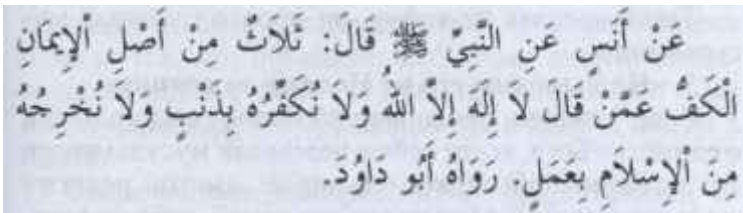 عَنْ أَنَسٍ عَنِ النَّبِيِّ ﷺ قَالَ: ثَلَاثٌ مِنْ أَصْلِ الْإِيمَانِ
الْكَفُّ عَمَّنْ قَال لَا إِلَهَ إِلاَّ اللهُ وَلَا نُكَفِّرُهُ بِذَنْبٍ ولاَ نُخْرِجُهُ
مِنَ الْإِسْلَامِ بِعَمَلٍ. رَوَاهُ أَبُو دَاوُدَ.